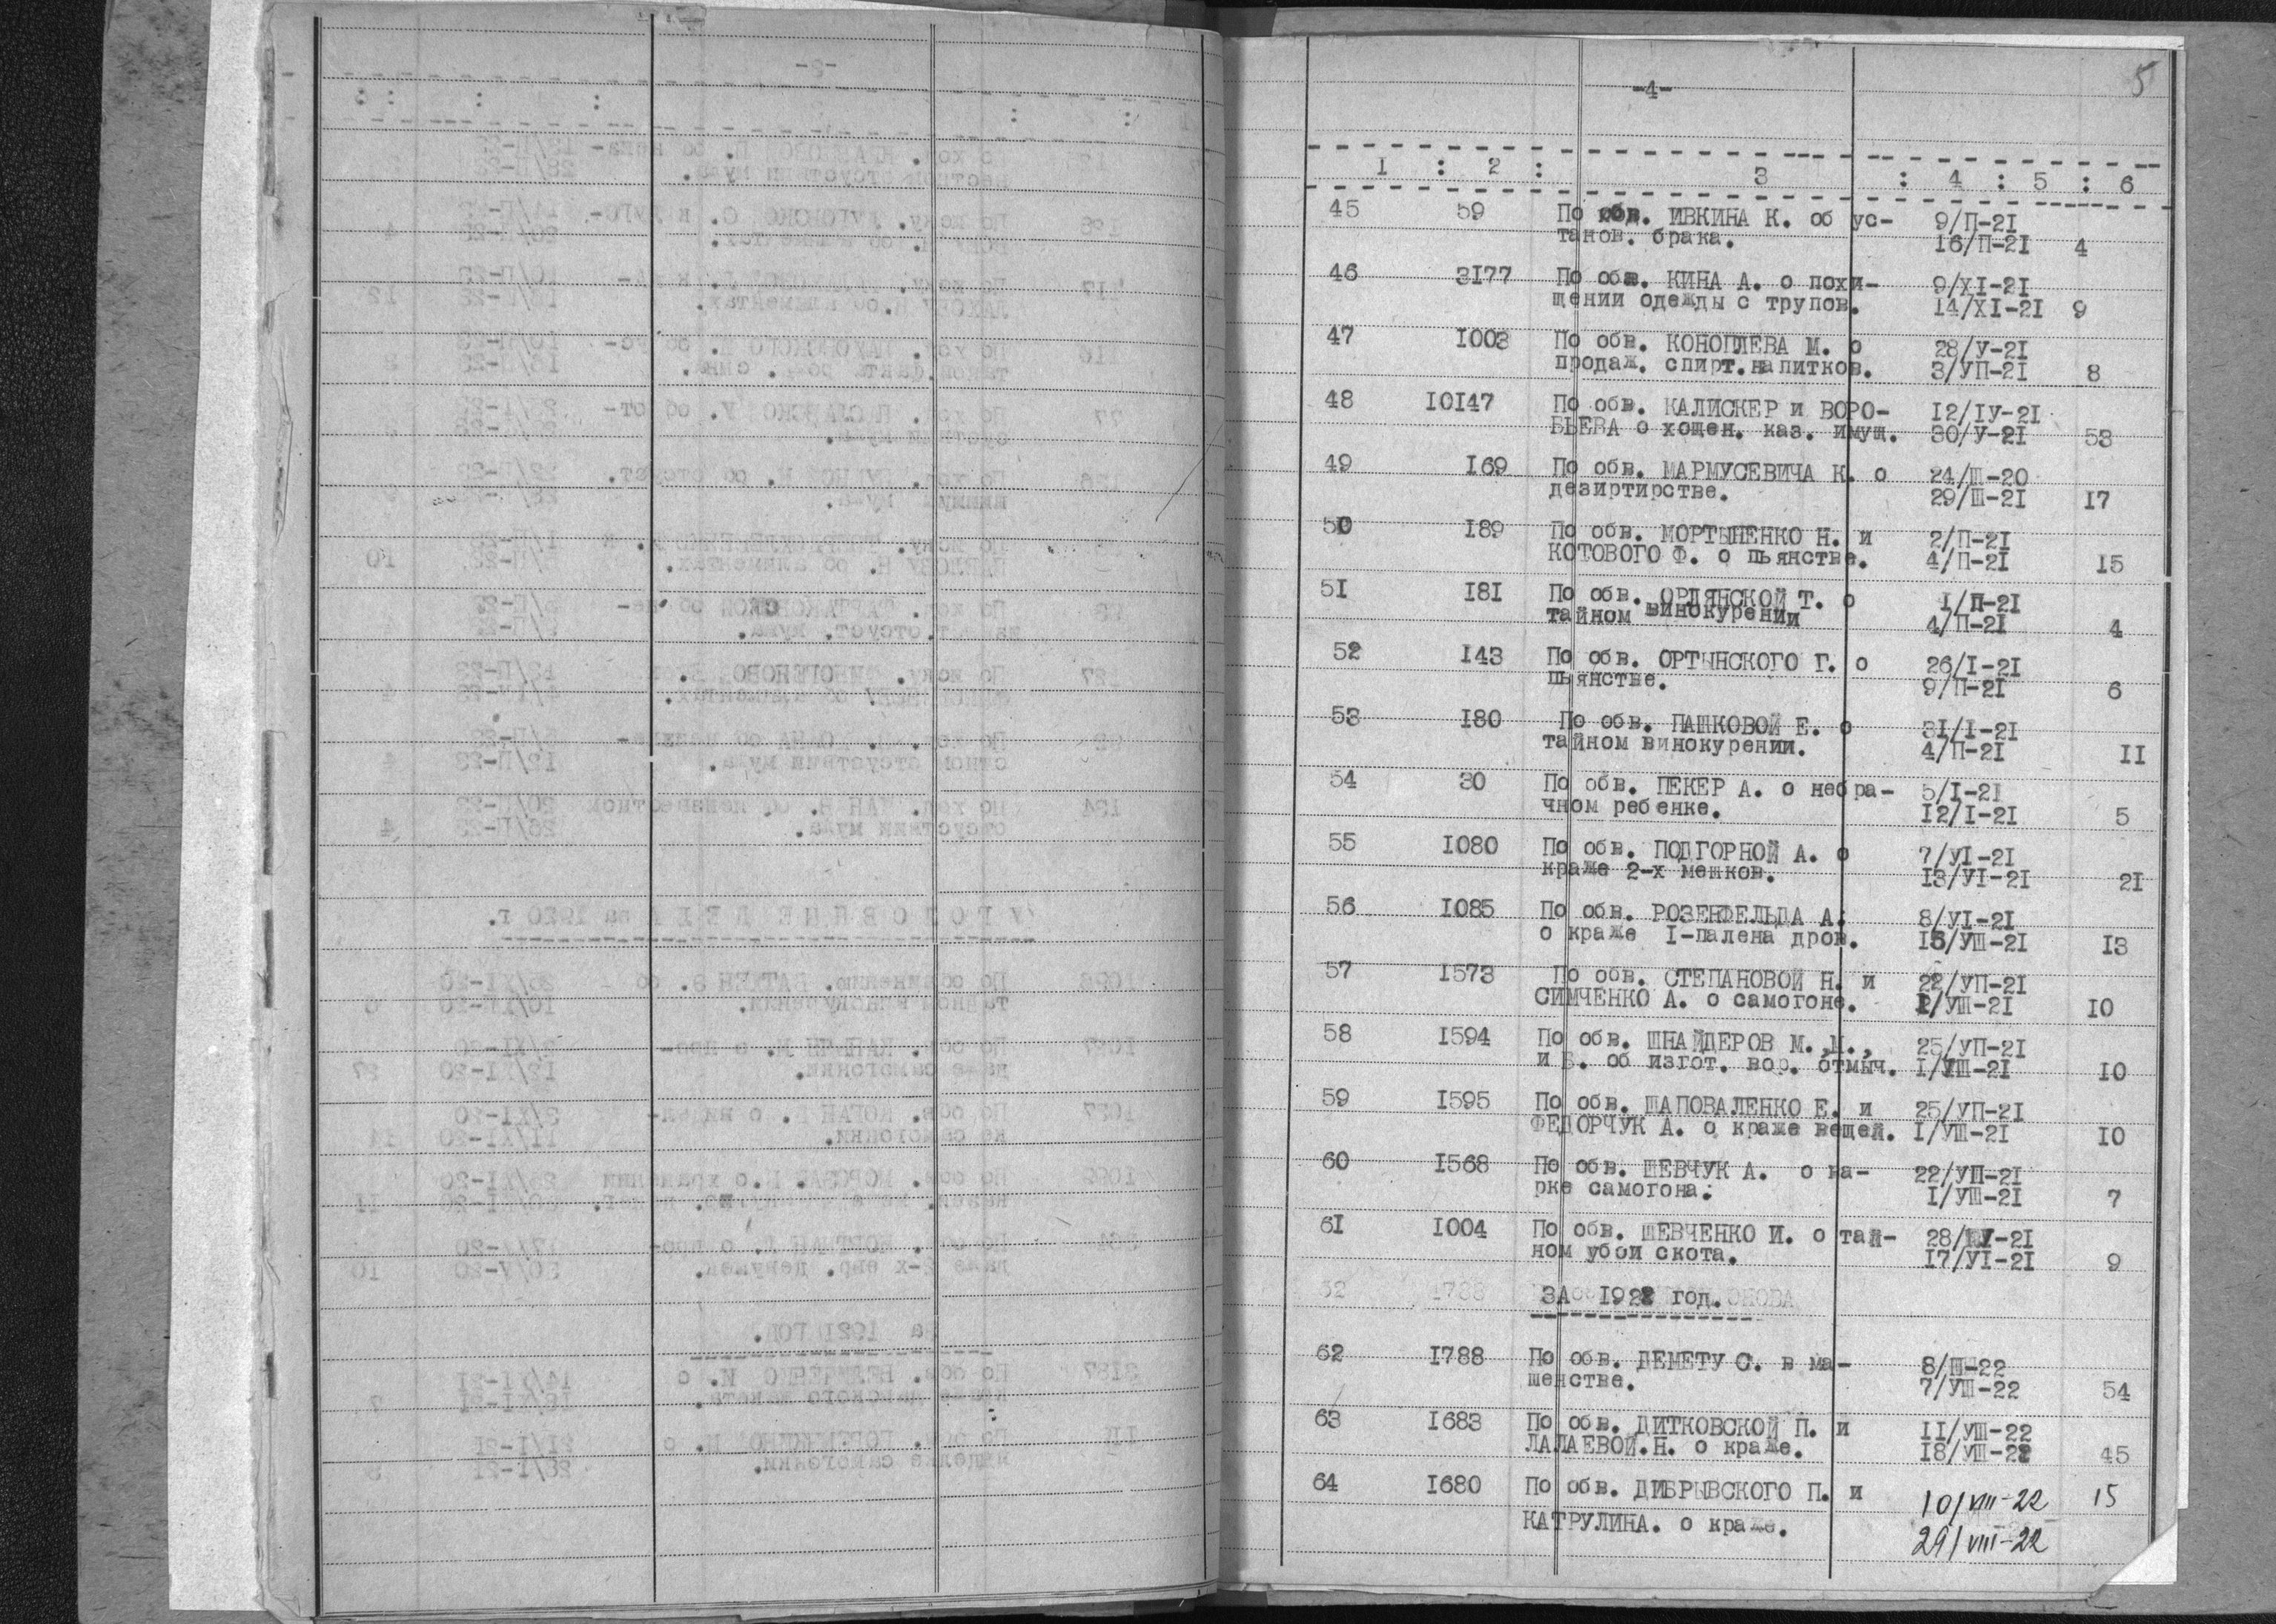 5
-4-
1 : 2 : 3 : 4 : 5 : 6
45 59 По обв. ИВКИНА К. об ус- 9/П-21
танов. брака. 16/П-21 4
46 3177 По обв. КИНА А. о похи- 9/XI-21
щении одежды с трупов. 14/XI-21 9
47 1003 По обв. КОНОПЛЕВА М. о 28/У-21
продаж. спирт.напитков. 3/УП-21 8
48 10147 По обв. КАЛИСКЕР и ВОРО- 12/IУ-21
БЬЕВА о хощен. каз. имущ. 30/У-21 53
49 169 По обв. МАРМУСЕВИЧА К. о 24/Ш-20
дезиртирстве. 29/Ш-21 17
50 189 По обв. МОРТЫНЕНКО Н. и 2/П-21
КОТОВОГО Ф. о пьянстве. 4/П-21 15
51 181 По обв. ОРЛЯНСКОЙ Т. о 1/П-21
тайном винокурении 4/П-21 4
52 143 По обв. ОРТЫНСКОГО Г. о 26/I-21
пьянстве. 9/П-21 6
53 180 По обв. ПАШКОВОЙ Е. о 31/I-21
тайном винокурении. 4/П-21 11
54 30 По обв. ПЕКЕР А. о небра- 5/I-21
чном ребенке. 12/I-21 5
55 1080 По обв. ПОДГОРНОЙ А. о 7/УI-21
краже 2-х мешков. 13/УI-21 21
56 1085 По обв. РОЗЕНФЕЛЬДА А. 8/УI-21
о краже 1-палена дров. 15/УШ-21 13
57 1573 По обв. СТЕПАНОВОЙ Н. и 22/УП-21
СИМЧЕНКО А. о самогоне. 1/УШ-21 10
58 1594 По обв. ШНАЙДЕРОВ М.,М., 25/УП-21
и Б. об изгот. вор. отмыч. 1/УШ-21 10
59 1595 По обв. ШАПОВАЛЕНКО Е. и 25/УП-21
ФЕДОРЧУК А. о краже вещей. 1/УШ-21 10
60 1568 По обв. ШЕВЧУК А. о ва- 22/УП-21
рке самогона. 1/УШ-21 7
61 1004 По обв. ШЕВЧЕНКО И. о тай- 28/У-21
ном убои скота. 17/УI-21 9
ЗА 1922 год.
62 1788 По обв. ДЕМЕТУ С. в ма- 8/Ш-22
шенстве. 7/УШ-22 54
63 1683 По обв. ДИТКОВСКОЙ П. и 11/УШ-22
ЛАЛАЕВОЙ.Н. о краже. 18/УШ-22 45
64 1680 По обв. ДИБРЫВСКОГО П. и 10/VIII-22 15
КАТРУЛИНА. о краже. 29/VIII-22